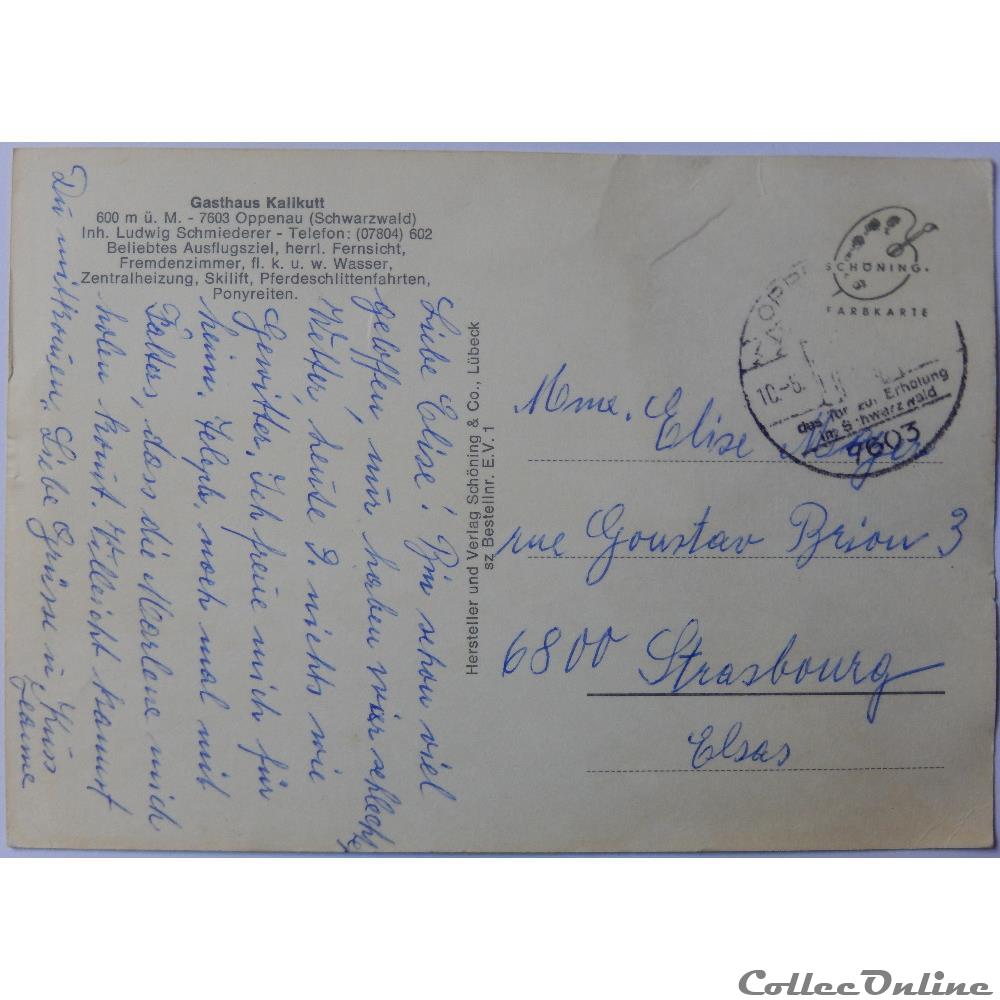 Gasthaus Kalikutt
600 m ü. M. - 7603 Oppenau (Schwarzwald)
Inh. Ludwig Schmiederer - Telefon: (07804) 602
Beliebtes Ausflugsziel, herrl. Fernsicht,
Fremdenzimmer, fl. k. u. w. Wasser,
Zentralheizung, Skilift, Pferdeschlittenfahrten,
Ponyreiten.
Liebe Elise! Bin schon viel
geloffen, nur haben wir schlecht
Wetter, heute 2. nichts wie
Gewitter. Ich freue mich für
heim. noch mal mit
Falter, dass die Marlene mich
holen kommt. Villeicht kannst
Du mitkommen. Liebe Grüsse u. Küss
Jeanne
Hersteller und Verlag Schöning & Co., Lübeck
sz Bestellnr. E.V. 1
SCHÖNING
FARBKARTE
OPP
10.-6.
das Tor zur Erholung
im Schwarzwald
7603
Mme. Elise
rue Goustav Brion 3
6800 Strasbourg
Elsas
CollecOnline